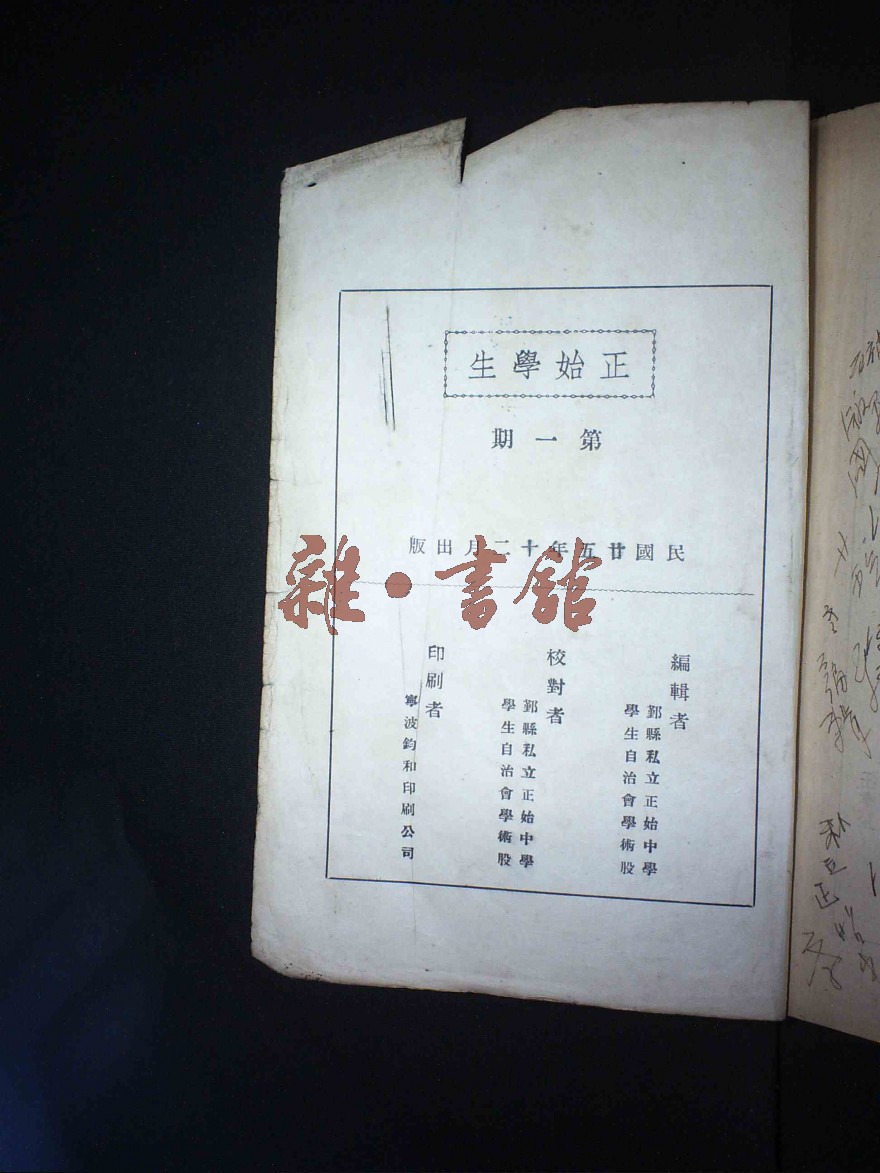 正始學生
第一期
民國廿五年十二月出版
編輯者
鄞縣私立正始中學
學生自治會學術股
校對者
鄞縣私立正始中學
學生自治會學術股
印刷者
寧波鈞和印刷公司
雜·書館